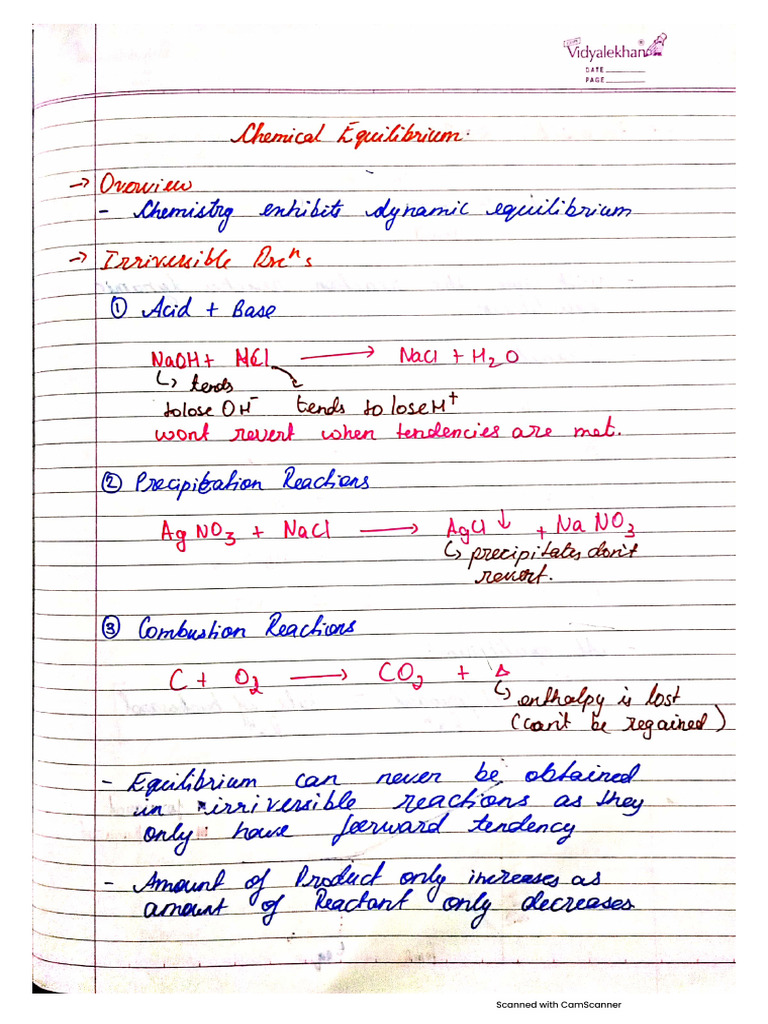 Vidyalekhan
DATE
PAGE
Chemical Equilibrium:
→ Overview
- Chemistry enhibits dynamic equilibrium
→ Irriversible Rxⁿs
① Acid + Base
NaOH + HCl ⟶ NaCl + H₂O
↳ tends
to lose OH⁻ tends to lose H⁺
wont revert when tendencies are met.
② Precipitation Reactions
AgNO₃ + NaCl ⟶ AgCl ↓ + NaNO₃
↳ precipitates don't
revert.
③ Combustion Reactions
C + O₂ ⟶ CO₂ + Δ
↳ enthalpy is lost
(can't be regained)
- Equilibrium can never be obtained
in irriversible reactions as they
only have forward tendency
- Amount of Product only increases as
amount of Reactant only decreases
Scanned with CamScanner